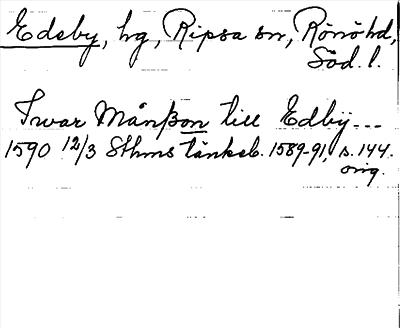 Edeby, hg, Ripsa sn, Rönö hd,
Söd. l.
Ivar Månßon till Edbij---
1590 12/3 Sthms tänkeb. 1589-91, s. 144.
orig.